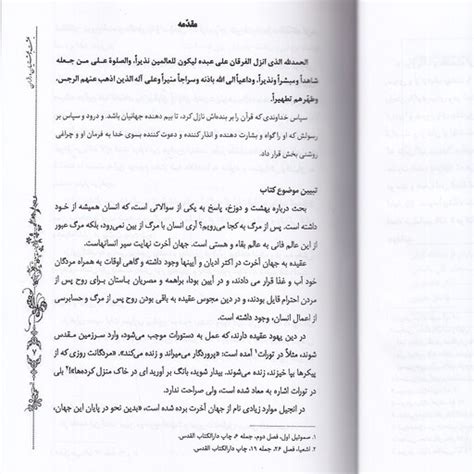 مقدّمه
الحمدلله الذی انزل الفرقان علی عبده لیکون للعالمین نذیراً، والصلوة علی من جعله
شاهداً ومبشراً ونذیراً، وداعیاً الی الله باذنه وسراجاً منیراً وعلی آله الذین اذهب عنهم الرجس،
وطهّرهم تطهیراً.
سپاس خداوندی که قرآن را بر بنده‌اش نازل کرد، تا بیم دهنده جهانیان باشد. و درود و سپاس بر
رسولش که او را گواه و بشارت دهنده و انذار کننده و دعوت کننده بسوی خدا به فرمان او و چراغی
روشنی بخش قرار داد.
تبیین موضوع کتاب
بحث درباره بهشت و دوزخ، پاسخ به یکی از سوالاتی است، که انسان همیشه از خود
داشته است. پس از مرگ به کجا می‌رویم؟ آری انسان با مرگ از بین نمی‌رود، بلکه مرگ عبور
از این عالم فانی به عالم بقاء و هستی است. جهان آخرت نهایت سیر انسانهاست.
عقیده به جهان آخرت در اکثر ادیان و آیینها وجود داشته و گاهی اوقات به همراه مردگان
خود آب و غذا قرار می دادند، و در آیین بودا، براهمه و مصریان باستان برای روح پس از
مردن احترام قایل بودند، و در دین مجوس عقیده به باقی بودن روح پس از مرگ و حسابرسی
از اعمال انسان، وجود داشته است.
در دین یهود عقیده دارند، که عمل به دستورات موجب می‌شود، وارد سرزمین مقدس
شوند، مثلاً در تورات۱ آمده است: «پروردگار می‌میراند و زنده می‌کند». «مردگانت روزی که از
پیکرها بپا خیزند، زنده می‌شوند. بیدار شوید، بانگ بر آورید ای در خاک منزل کرده‌ها»۲ بلی
در تورات اشاره به معاد شده است، ولی صراحت ندارد.
در انجیل موارد زیادی نام از جهان آخرت برده شده است، «بدین نحو در پایان این جهان،
۱. سموئیل اول، فصل دوم، جمله ۶ چاپ دارالکتاب القدس.
۲. اشعیا، فصل ۲۶، جمله ۱۹، چاپ دارالکتاب القدس.
۷